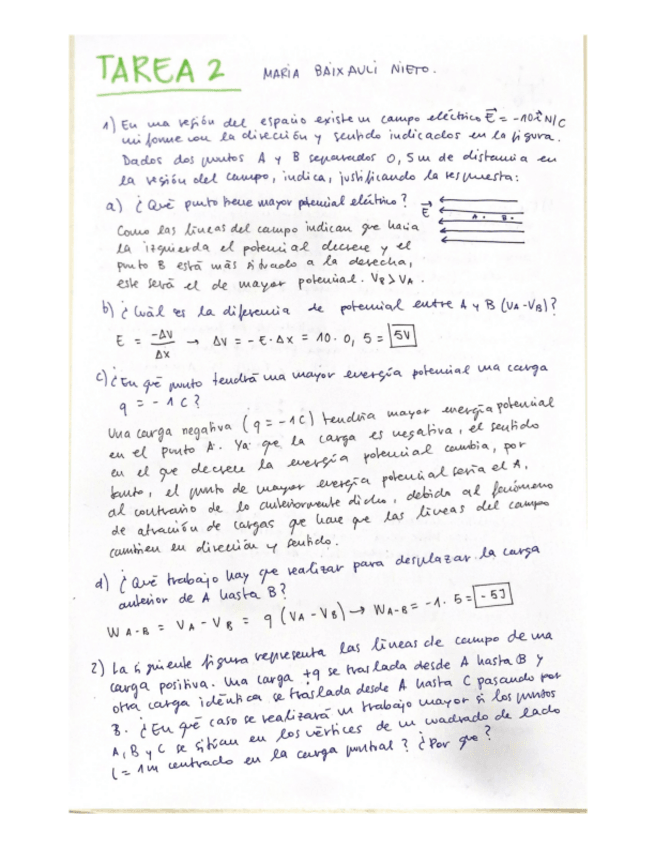 TAREA 2 MARIA BAIXAULI NIETO.
1) En una región del espacio existe un campo eléctrico E⃗ = -10 î N/C
uniforme con la dirección y sentido indicados en la figura.
Dados dos puntos A y B separados 0,5 m de distancia en
la región del campo, indica, justificando la respuesta:
a) ¿Qué punto tiene mayor potencial eléctrico?
E⃗
A · B ·
Como las líneas del campo indican que hacia
la izquierda el potencial decrece y el
punto B está más situado a la derecha,
este será el de mayor potencial. VB > VA.
b) ¿Cuál es la diferencia de potencial entre A y B (VA-VB)?
E = -ΔV/Δx → ΔV = -E·Δx = 10·0,5 = 5V
c) ¿En qué punto tendrá una mayor energía potencial una carga
q = -1C?
Una carga negativa (q = -1C) tendría mayor energía potencial
en el punto A. Ya que la carga es negativa, el sentido
en el que decrece la energía potencial cambia, por
tanto, el punto de mayor energía potencial sería el A,
al contrario de lo anteriormente dicho, debido al fenómeno
de atracción de cargas que hace que las líneas del campo
cambien en dirección y sentido.
d) ¿Qué trabajo hay que realizar para desplazar la carga
anterior de A hasta B?
WA-B = VA - VB = q (VA - VB) → WA-B = -1·5 = -5J
2) La siguiente figura representa las líneas de campo de una
carga positiva. Una carga +q se traslada desde A hasta B y
otra carga idéntica se traslada desde A hasta C pasando por
B. ¿En qué caso se realizará un trabajo mayor si los puntos
A, B y C se sitúan en los vértices de un cuadrado de lado
l = 1m centrado en la carga puntual? ¿Por qué?